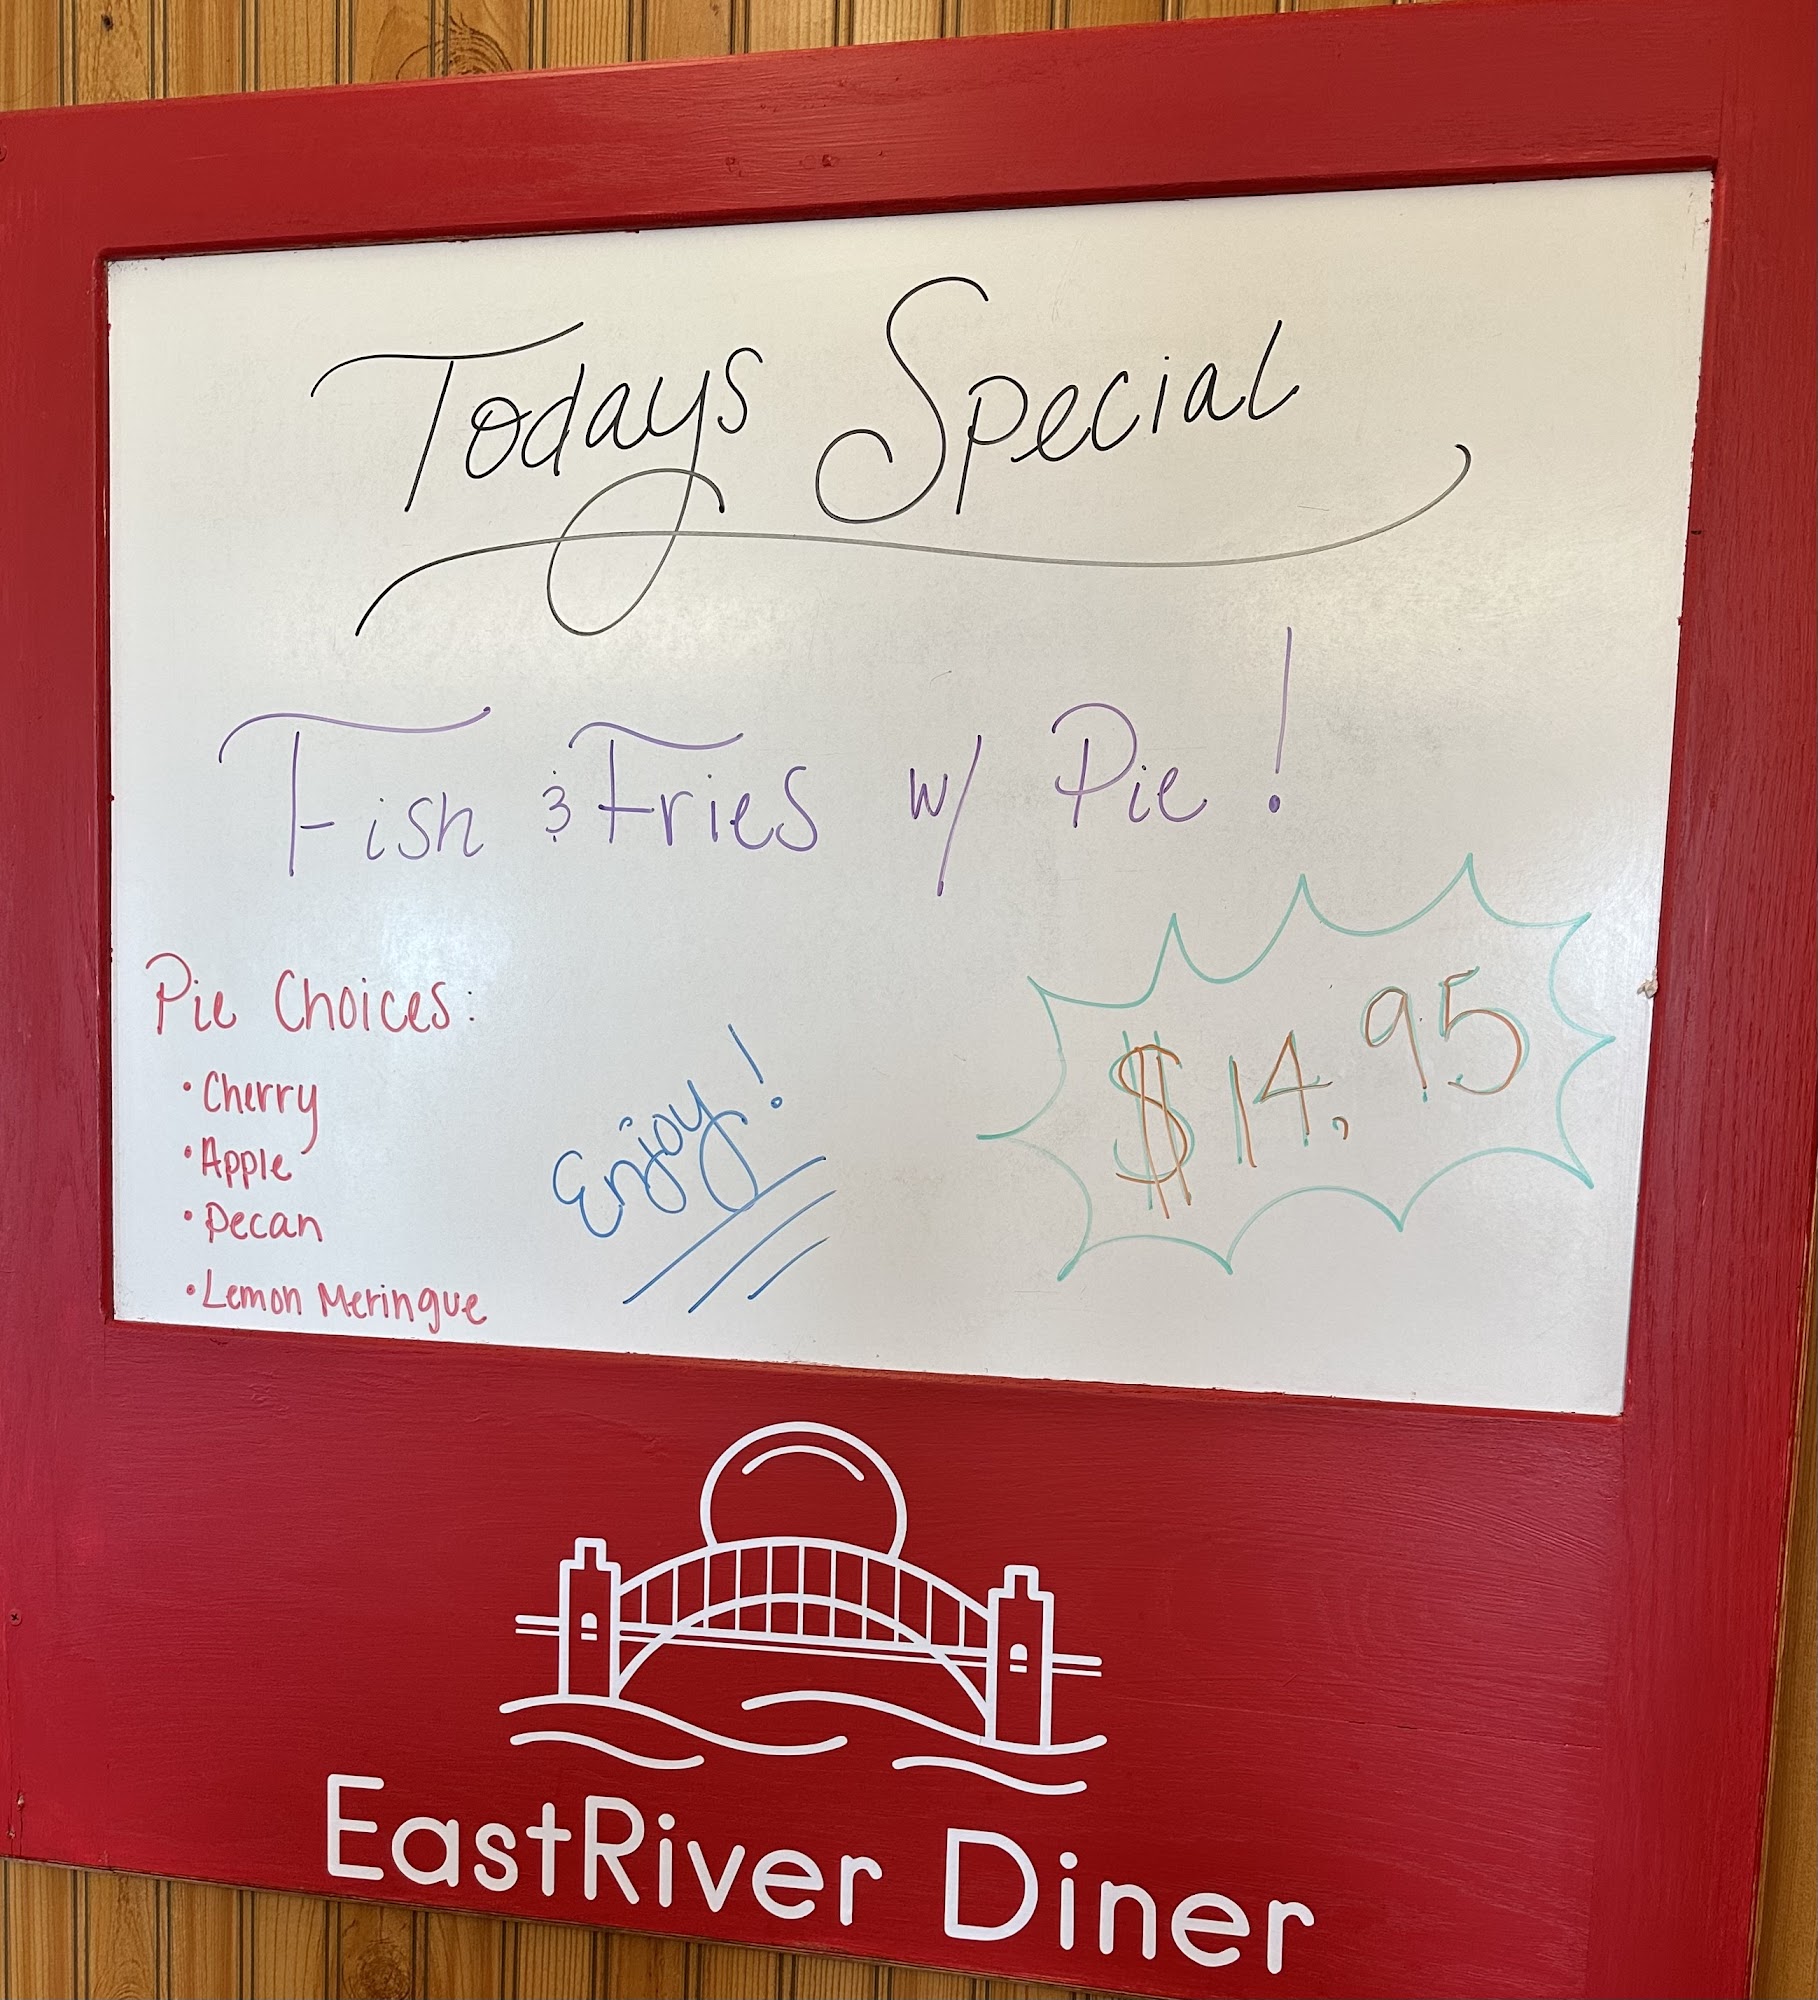 Todays Special
Fish & Fries w/ Pie!
Pie Choices:
• Cherry
• Apple
• Pecan
• Lemon Meringue
Enjoy!
$14.95
EastRiver Diner